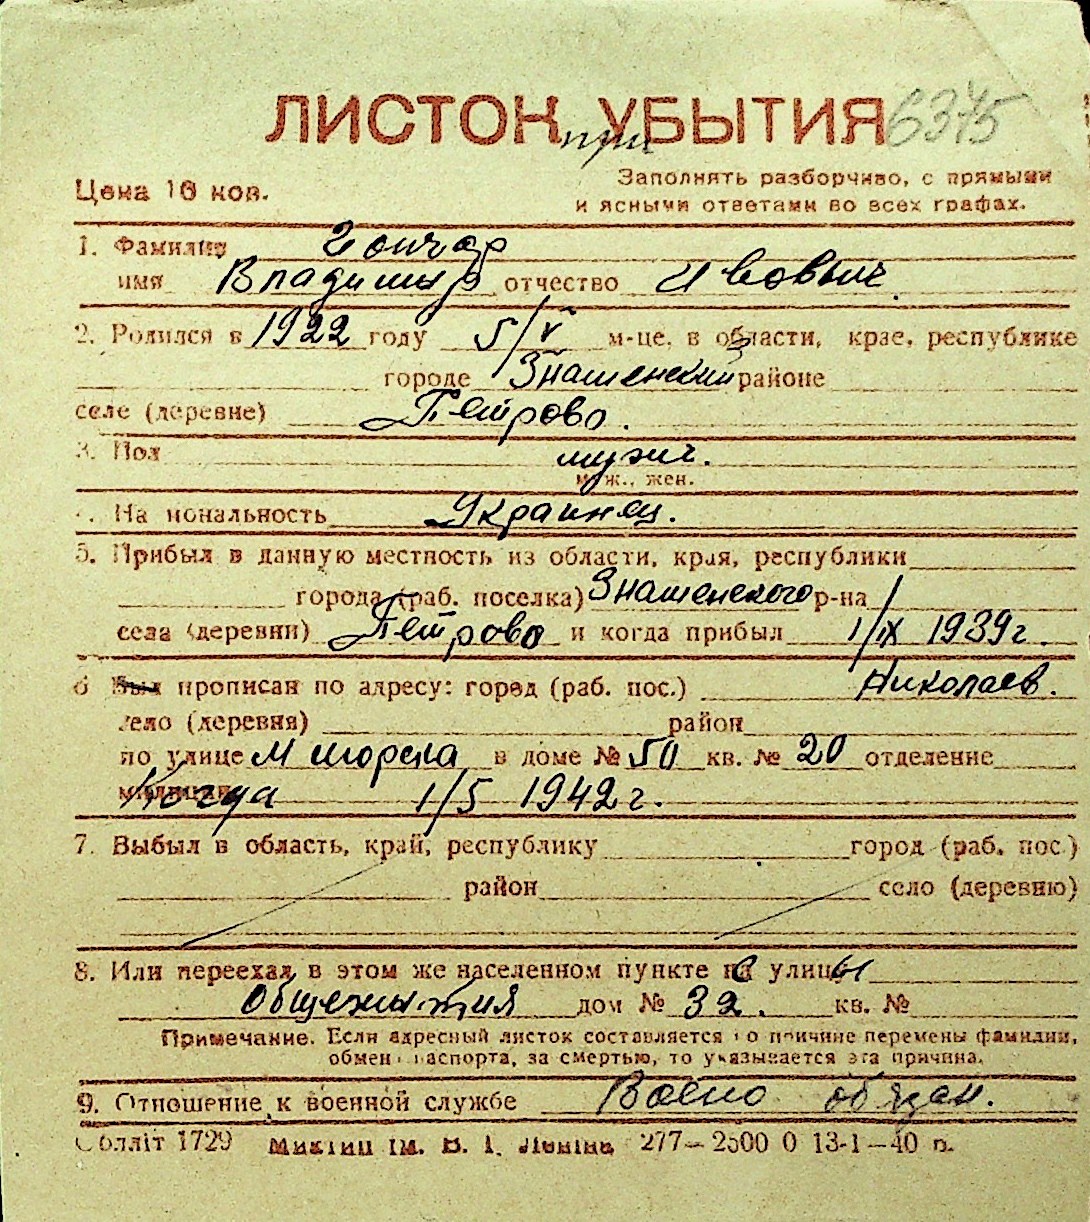 ЛИСТОК УБЫТИЯ 6345
при
Цена 10 коп.
Заполнять разборчиво, с прямыми
и ясными ответами во всех графах.
1. Фамилия Гончар
имя Владимир отчество
2. Родился в 1922 году 5/V м-це, в области, крае, республике
городе Знаменский районе
селе (деревне) Петрово.
3. Пол мужч.
муж., жен.
На иональность Украинец.
5. Прибыл в данную местность из области, края, республики
города (раб. поселка) Знаменского р-на
села (деревни) Петрово и когда прибыл 1/IX 1939 г.
6 Был прописан по адресу: город (раб. пос.) Николаев.
село (деревня) район
по улице М Морская в доме № 50 кв. № 20 отделение
милиции Когда 1/5 1942 г.
7. Выбыл в область, край, республику город (раб. пос.)
район село (деревню)
8. Или переехал в этом же населенном пункте с улицы
Общежития дом № 32. кв. №
Примечание. Если адресный листок составляется по причине перемены фамилии,
обмен паспорта, за смертью, то указывается эта причина.
9. Отношение к военной службе Воено обязан.
Облліт 1729 ім. В. І. Леніна 277—2500 0 13-1—40 р.